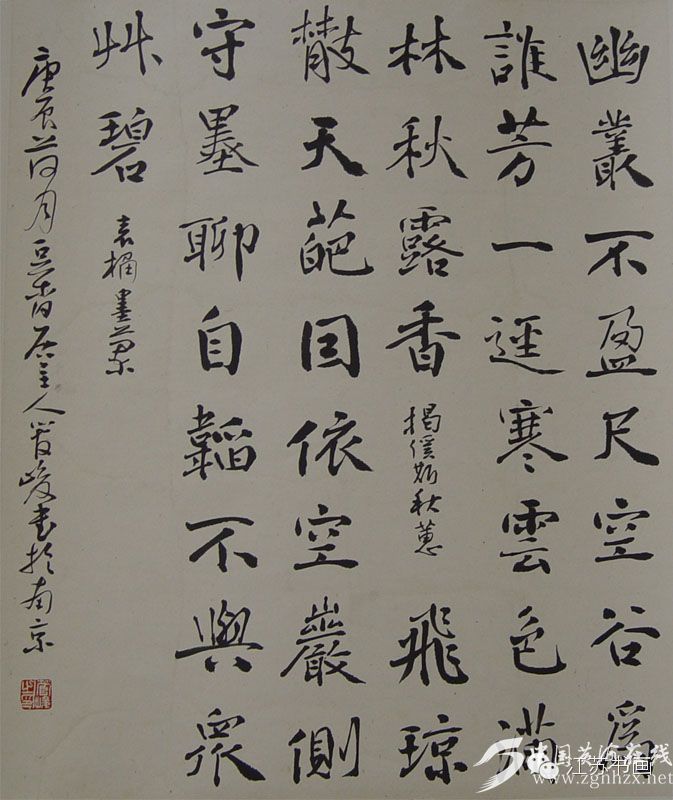 幽叢不盈尺空谷為
誰芳一逕寒雲色滿
林秋露香 揭傒斯秋蕙 飛瓊
散天葩因依空巖側
守墨聊自韜不與眾
艸碧 袁桷墨蘭
庚辰荷月豆香居主人峻书於南京
中国在线
江苏书画
www.zgnhzx.net